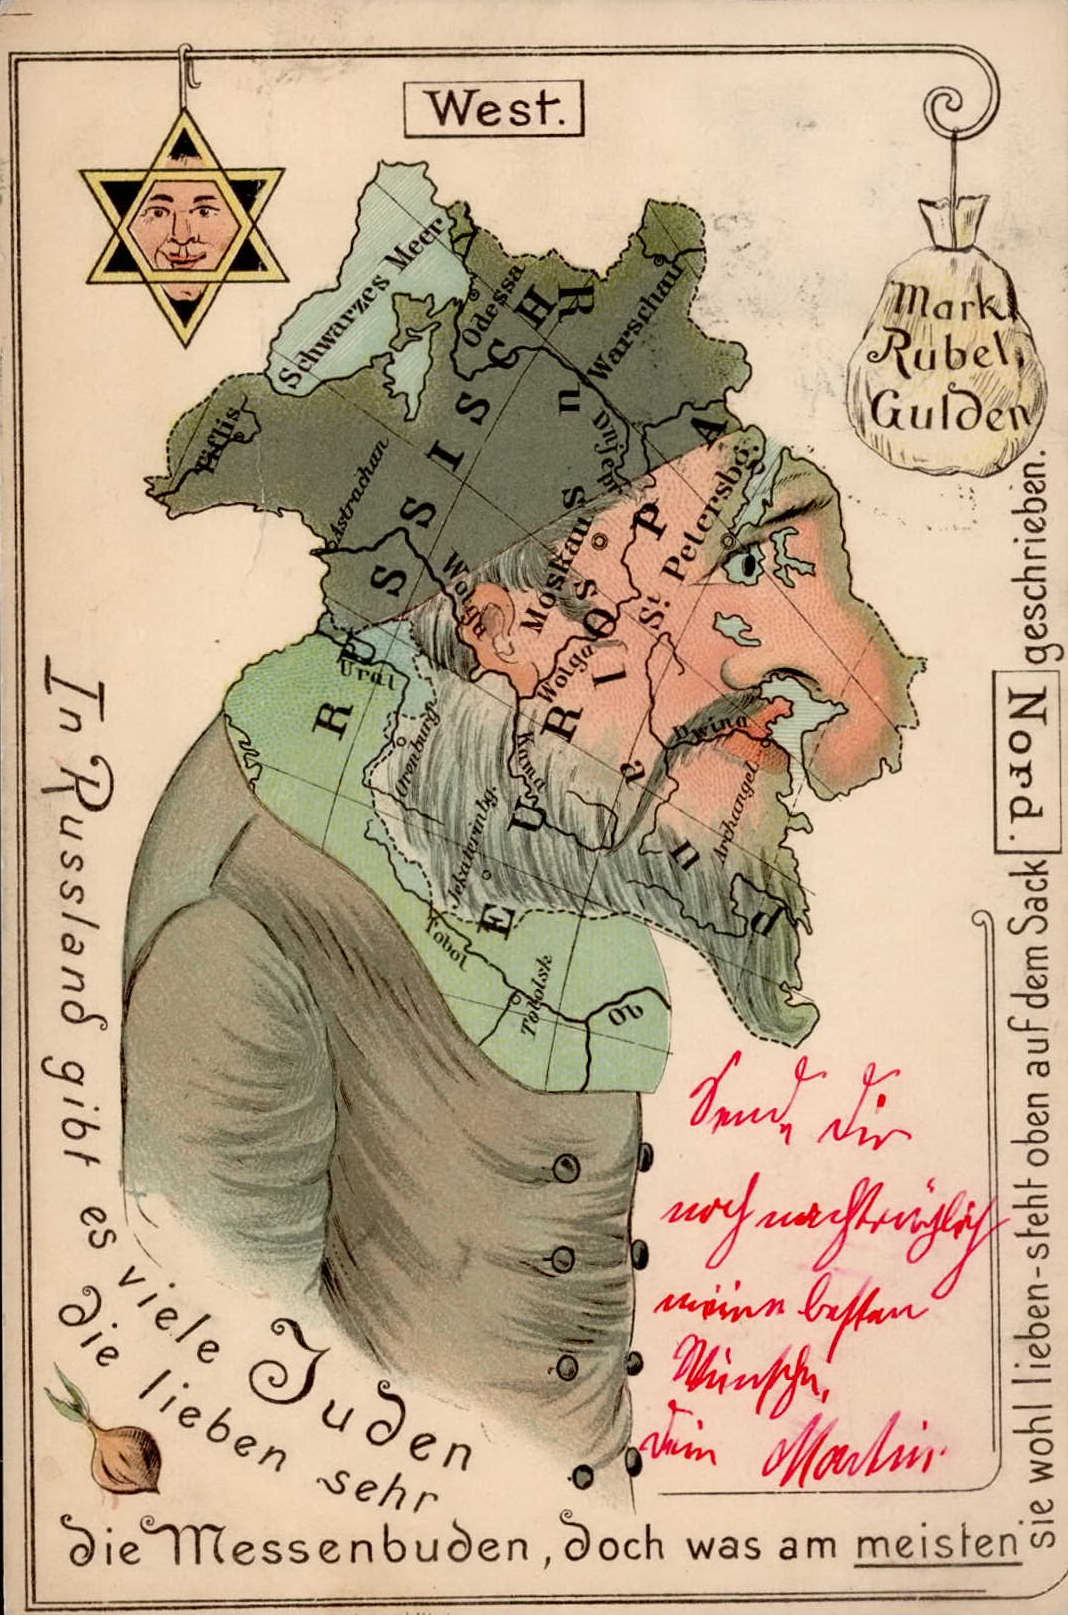 West.
Mark.
Rubel,
Gulden
Schwarzes Meer
Odessa
Warschau
Tiflis
Astrachan
Dnjepr
RUSSISCH
EUROPA
R u. S
Moskau
St. Petersbg.
Wolga
Wolga
Ural
Orenburg
Kama
Dwina
Archangel
Jekaterinbg.
Tobol
Tobolsk
Ob
Nord.
In Russland gibt es viele Juden
die lieben sehr
die Messenbuden, doch was am meisten
sie wohl lieben-steht oben auf dem Sack geschrieben.
Sende Dir
noch nachträglich
meine besten
Wünsche,
Dein Martin.